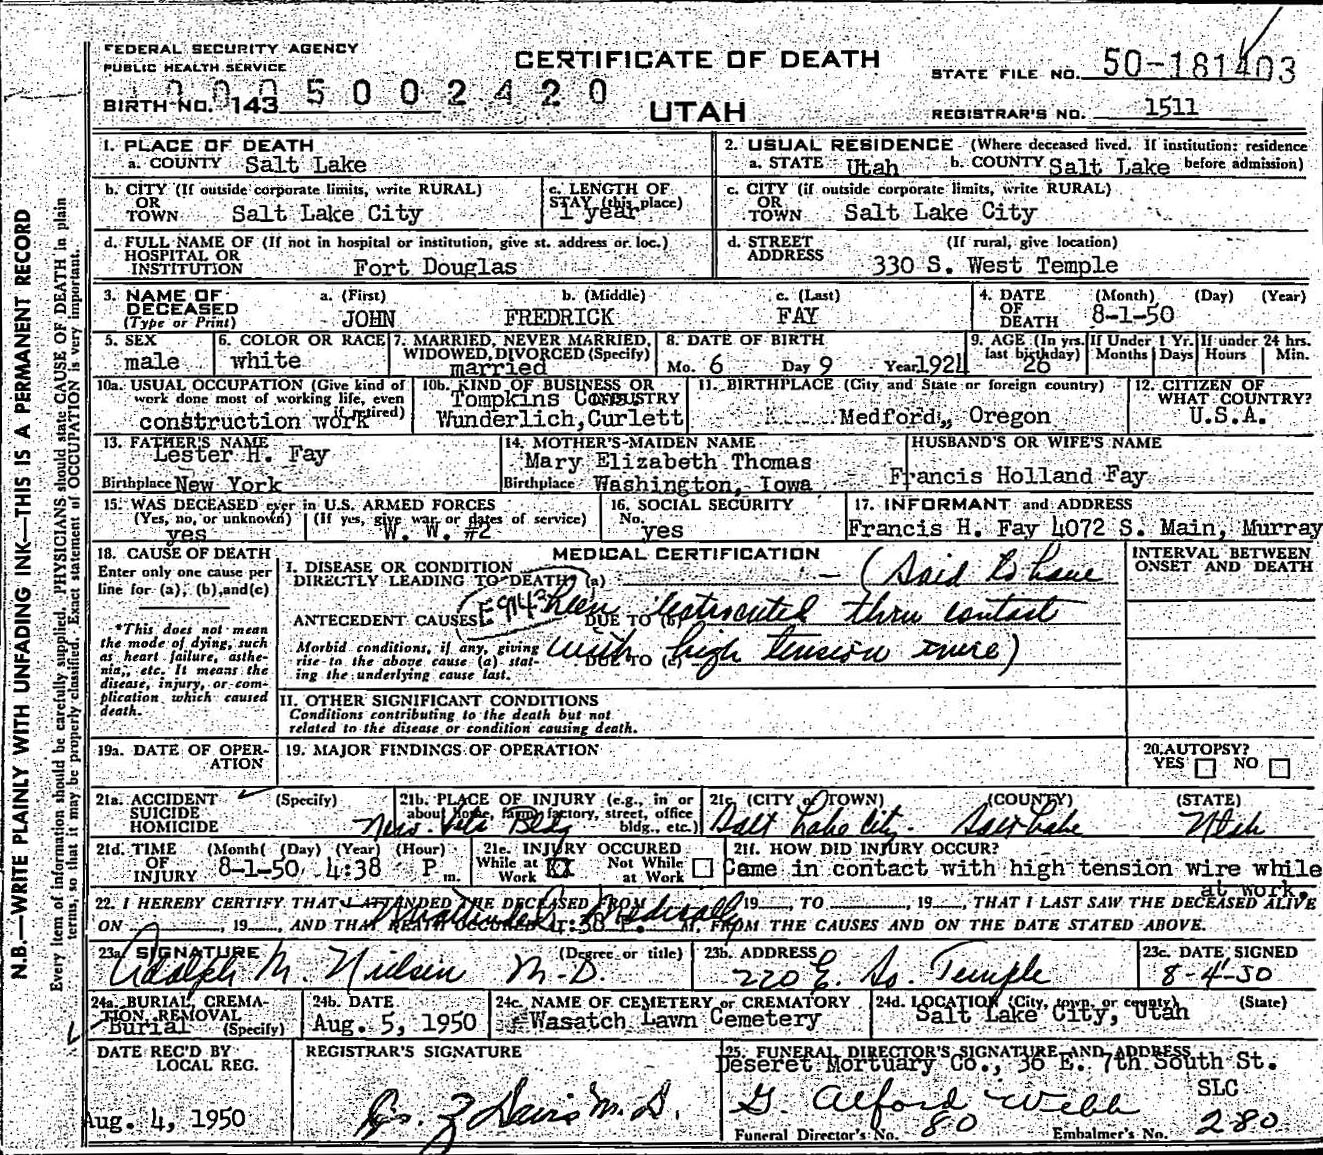 FEDERAL SECURITY AGENCY
PUBLIC HEALTH SERVICE
CERTIFICATE OF DEATH
STATE FILE NO. 50-181403
BIRTH NO. 143 5 0 0 2 4 2 0
UTAH
REGISTRAR'S NO. 1511
N.B.—WRITE PLAINLY WITH UNFADING INK—THIS IS A PERMANENT RECORD
Every item of information should be carefully supplied. PHYSICIANS should state CAUSE OF DEATH in plain
terms, so that it may be properly classified. Exact statement of OCCUPATION is very important.
1. PLACE OF DEATH
a. COUNTY Salt Lake
2. USUAL RESIDENCE (Where deceased lived. If institution: residence
a. STATE Utah b. COUNTY Salt Lake before admission)
b. CITY (If outside corporate limits, write RURAL)
OR
TOWN Salt Lake City
c. LENGTH OF
STAY (this place)
1 year
c. CITY (if outside corporate limits, write RURAL)
OR
TOWN Salt Lake City
d. FULL NAME OF (If not in hospital or institution, give st. address or loc.)
HOSPITAL OR
INSTITUTION Fort Douglas
d. STREET (If rural, give location)
ADDRESS
330 S. West Temple
3. NAME OF DECEASED (Type or Print)
a. (First) b. (Middle) c. (Last)
JOHN FREDRICK FAY
4. DATE OF DEATH (Month) (Day) (Year)
8-1-50
5. SEX
male
6. COLOR OR RACE
white
7. MARRIED, NEVER MARRIED,
WIDOWED, DIVORCED (Specify)
married
8. DATE OF BIRTH
Mo. 6 Day 9 Year 1924
9. AGE (In yrs. last birthday)
26
If Under 1 Yr. Months Days
If under 24 hrs. Hours Min.
10a. USUAL OCCUPATION (Give kind of
work done most of working life, even
if retired)
construction work
10b. KIND OF BUSINESS OR
INDUSTRY
Tompkins Cons
Wunderlich, Curlett
11. BIRTHPLACE (City and State or foreign country)
Medford, Oregon
12. CITIZEN OF
WHAT COUNTRY?
U.S.A.
13. FATHER'S NAME
Lester H. Fay
Birthplace New York
14. MOTHER'S MAIDEN NAME
Mary Elizabeth Thomas
Birthplace Washington, Iowa
HUSBAND'S OR WIFE'S NAME
Francis Holland Fay
15. WAS DECEASED ever in U.S. ARMED FORCES
(Yes, no, or unknown) (If yes, give war or dates of service)
yes W. W. #2
16. SOCIAL SECURITY
No.
yes
17. INFORMANT and ADDRESS
Francis H. Fay 4072 S. Main, Murray
18. CAUSE OF DEATH
Enter only one cause per
line for (a), (b), and (c)
*This does not mean
the mode of dying, such
as heart failure, asthe-
nia, etc. It means the
disease, injury, or com-
plication which caused
death.
MEDICAL CERTIFICATION
I. DISEASE OR CONDITION
DIRECTLY LEADING TO DEATH (a) (Said to have
ANTECEDENT CAUSES E914.3 DUE TO (b) been electrocuted thru contact
Morbid conditions, if any, giving
rise to the above cause (a) stat-
ing the underlying cause last.
DUE TO (c) with high tension wire)
II. OTHER SIGNIFICANT CONDITIONS
Conditions contributing to the death but not
related to the disease or condition causing death.
INTERVAL BETWEEN
ONSET AND DEATH
19a. DATE OF OPER-
ATION
19. MAJOR FINDINGS OF OPERATION
20. AUTOPSY?
YES NO
21a. ACCIDENT (Specify)
SUICIDE
HOMICIDE
21b. PLACE OF INJURY (e.g., in or
about home, farm, factory, street, office
bldg., etc.)
New Vets Bldg
21c. (CITY or TOWN) (COUNTY) (STATE)
Salt Lake City. Salt Lake Utah
21d. TIME OF INJURY (Month) (Day) (Year) (Hour)
8-1-50 4:38 P m.
21e. INJURY OCCURED
While at Work XX Not While at Work
21f. HOW DID INJURY OCCUR?
Came in contact with high tension wire while
at work.
22. I HEREBY CERTIFY THAT I ATTENDED THE DECEASED FROM 19, TO, 19, THAT I LAST SAW THE DECEASED ALIVE
Not attended medically
ON, 19, AND THAT DEATH OCCURED 4:38 P. M. FROM THE CAUSES AND ON THE DATE STATED ABOVE.
23a. SIGNATURE (Degree or title)
Adolph M. Nielsen M.D.
23b. ADDRESS
220 E. So. Temple
23c. DATE SIGNED
8-4-50
24a. BURIAL, CREMA-
TION, REMOVAL
Burial (Specify)
24b. DATE
Aug. 5, 1950
24c. NAME OF CEMETERY or CREMATORY
Wasatch Lawn Cemetery
24d. LOCATION (City, town, or county) (State)
Salt Lake City, Utah
DATE REC'D BY
LOCAL REG.
Aug. 4, 1950
REGISTRAR'S SIGNATURE
Davis M.D.
25. FUNERAL DIRECTOR'S SIGNATURE AND ADDRESS
Deseret Mortuary Co., 36 E. 7th South St.
SLC
G. Alford Webb
Funeral Director's No. 80 Embalmer's No. 280